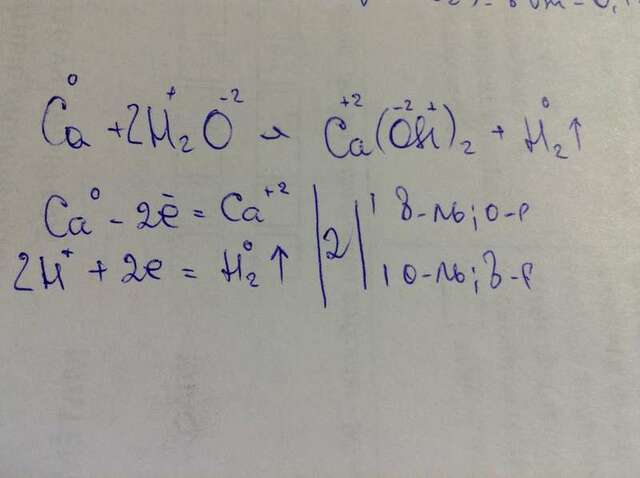 Ca⁰ + 2H₂⁺O⁻² → Ca⁺²(O⁻²H⁺)₂ + H₂⁰↑
Ca⁰ - 2ē = Ca⁺² | 2 | 1 в-ль; о-е
2H⁺ + 2e = H₂⁰↑ | 1 о-ль; в-е